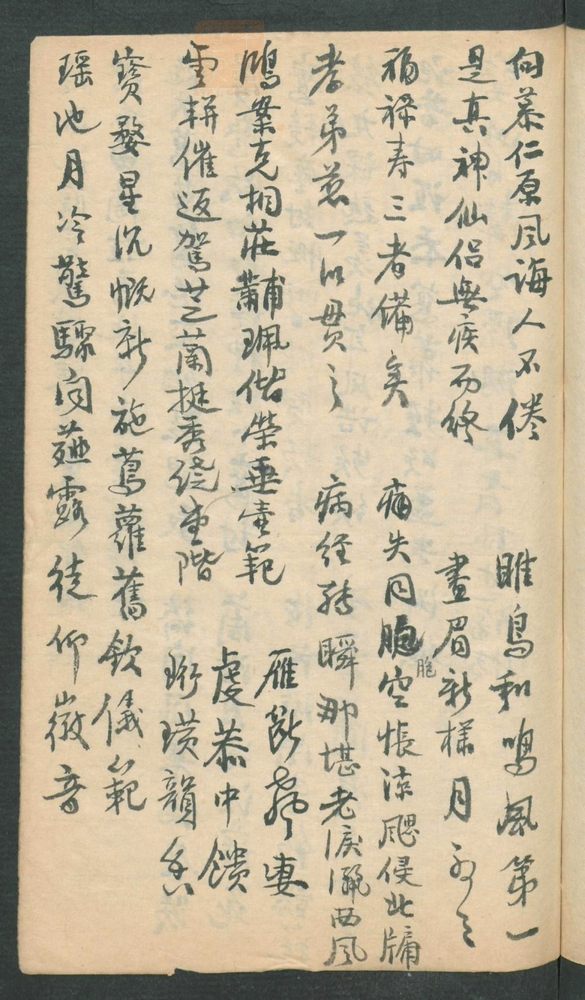 向慕仁原風誨人不倦　雎鳥和鳴風第一
是真神仙侶無疾而終　畫眉新様月初三
福禄寿三者備矣　痛失同胞空悵涼颸侵北牖
胞
孝弟慈一以貫之　病經轉瞬那堪老淚灑西風
鴻案克相莊黼珮偕榮垂壼範　雁斷聲凄
雲軿催返駕芝蘭挺秀绕堂階　虔恭中饋
寳婺星沉慨新施蔦蘿舊欽儀範　珩璜韻
瑶池月冷驚驟向薤露徒仰徽音